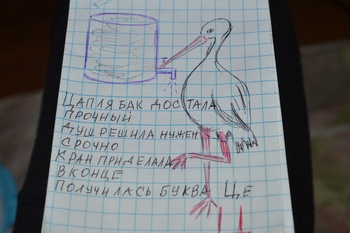 ЦАПЛЯ БАК ДОСТАЛА
ПРОЧНЫЙ
ДУШ РЕШИЛА НУЖЕН
СРОЧНО
КРАН ПРИДЕЛАЛА
В КОНЦЕ
ПОЛУЧИЛАСЬ БУКВА Ц,Е